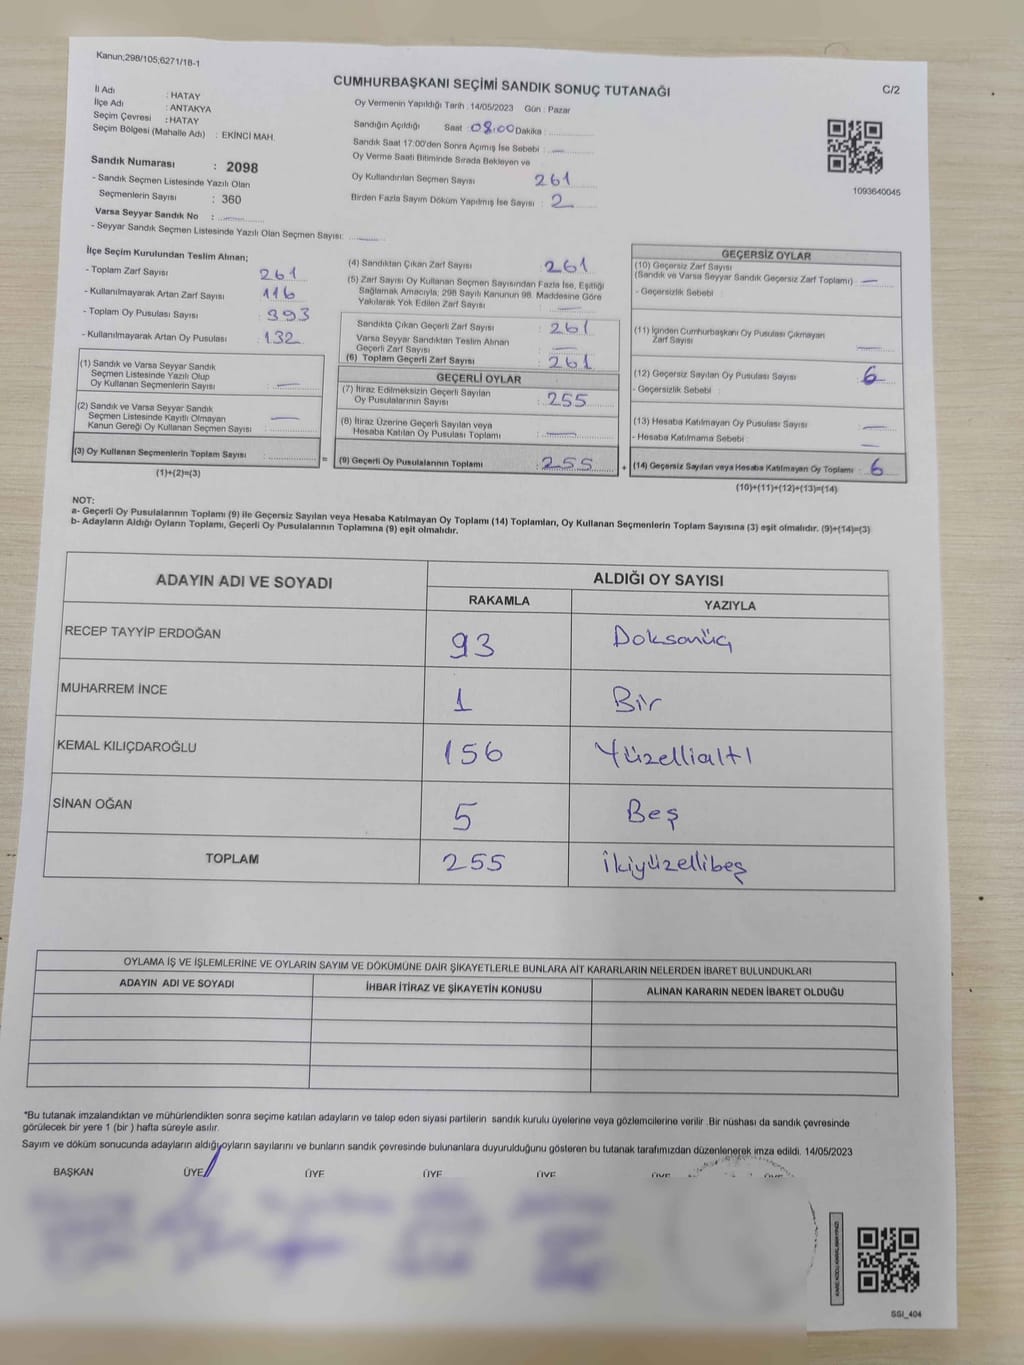 Kanun;298/105,6271/18-1
CUMHURBAŞKANI SEÇİMİ SANDIK SONUÇ TUTANAĞI
C/2
İl Adı : HATAY
İlçe Adı : ANTAKYA
Seçim Çevresi : HATAY
Seçim Bölgesi (Mahalle Adı) : EKİNCİ MAH.
Sandık Numarası : 2098
- Sandık Seçmen Listesinde Yazılı Olan
Seçmenlerin Sayısı : 360
Varsa Seyyar Sandık No :
- Seyyar Sandık Seçmen Listesinde Yazılı Olan Seçmen Sayısı:
Oy Vermenin Yapıldığı Tarih : 14/05/2023 Gün : Pazar
Sandığın Açıldığı Saat : 08.00 Dakika :
Sandık Saat 17:00'den Sonra Açımış İse Sebebi : —
Oy Verme Saati Bitiminde Sırada Bekleyen ve
Oy Kullandırılan Seçmen Sayısı 261
Birden Fazla Sayım Döküm Yapılmış İse Sayısı : 2
1093640045
İlçe Seçim Kurulundan Teslim Alınan;
- Toplam Zarf Sayısı 261
- Kullanılmayarak Artan Zarf Sayısı : 116
- Toplam Oy Pusulası Sayısı : 393
- Kullanılmayarak Artan Oy Pusulası : 132
(1) Sandık ve Varsa Seyyar Sandık
Seçmen Listesinde Yazılı Olup
Oy Kullanan Seçmenlerin Sayısı : —
(2) Sandık ve Varsa Seyyar Sandık
Seçmen Listesinde Kayıtlı Olmayan
Kanun Gereği Oy Kullanan Seçmen Sayısı : —
(3) Oy Kullanan Seçmenlerin Toplam Sayısı :
(1)+(2)=(3)
(4) Sandıktan Çıkan Zarf Sayısı : 261
(5) Zarf Sayısı Oy Kullanan Seçmen Sayısından Fazla İse, Eşitliği
Sağlamak Amacıyla, 298 Sayılı Kanunun 98. Maddesine Göre
Yakılarak Yok Edilen Zarf Sayısı : —
Sandıkta Çıkan Geçerli Zarf Sayısı : 261
Varsa Seyyar Sandıktan Teslim Alınan
Geçerli Zarf Sayısı : —
(6) Toplam Geçerli Zarf Sayısı : 261
GEÇERLİ OYLAR
(7) İtiraz Edilmeksizin Geçerli Sayılan
Oy Pusulalarının Sayısı : 255
(8) İtiraz Üzerine Geçerli Sayılan veya
Hesaba Katılan Oy Pusulası Toplamı : —
= (9) Geçerli Oy Pusulalarının Toplamı : 255 +
GEÇERSİZ OYLAR
(10) Geçersiz Zarf Sayısı
(Sandık ve Varsa Seyyar Sandık Geçersiz Zarf Toplamı) : —
- Geçersizlik Sebebi :
(11) İçinden Cumhurbaşkanı Oy Pusulası Çıkmayan
Zarf Sayısı : —
(12) Geçersiz Sayılan Oy Pusulası Sayısı : 6
- Geçersizlik Sebebi :
(13) Hesaba Katılmayan Oy Pusulası Sayısı : —
- Hesaba Katılmama Sebebi : —
(14) Geçersiz Sayılan veya Hesaba Katılmayan Oy Toplamı : 6
(10)+(11)+(12)+(13)=(14)
NOT:
a- Geçerli Oy Pusulalarının Toplamı (9) ile Geçersiz Sayılan veya Hesaba Katılmayan Oy Toplamı (14) Toplamları, Oy Kullanan Seçmenlerin Toplam Sayısına (3) eşit olmalıdır. (9)+(14)=(3)
b- Adayların Aldığı Oyların Toplamı, Geçerli Oy Pusulalarının Toplamına (9) eşit olmalıdır.
ADAYIN ADI VE SOYADI ALDIĞI OY SAYISI
RAKAMLA YAZIYLA
RECEP TAYYİP ERDOĞAN 93 Doksanüç
MUHARREM İNCE 1 Bir
KEMAL KILIÇDAROĞLU 156 Yüzellialtı
SİNAN OĞAN 5 Beş
TOPLAM 255 ikiyüzellibeş
OYLAMA İŞ VE İŞLEMLERİNE VE OYLARIN SAYIM VE DÖKÜMÜNE DAİR ŞİKAYETLERLE BUNLARA AİT KARARLARIN NELERDEN İBARET BULUNDUKLARI
ADAYIN ADI VE SOYADI İHBAR İTİRAZ VE ŞİKAYETİN KONUSU ALINAN KARARIN NEDEN İBARET OLDUĞU
*Bu tutanak imzalandıktan ve mühürlendikten sonra seçime katılan adayların ve talep eden siyasi partilerin sandık kurulu üyelerine veya gözlemcilerine verilir .Bir nüshası da sandık çevresinde
görülecek bir yere 1 (bir ) hafta süreyle asılır.
Sayım ve döküm sonucunda adayların aldığı oyların sayılarını ve bunların sandık çevresinde bulunanlara duyurulduğunu gösteren bu tutanak tarafımızdan düzenlenerek imza edildi. 14/05/2023
BAŞKAN ÜYE ÜYE ÜYE ÜYE ÜYE ÜYE
SSI_404